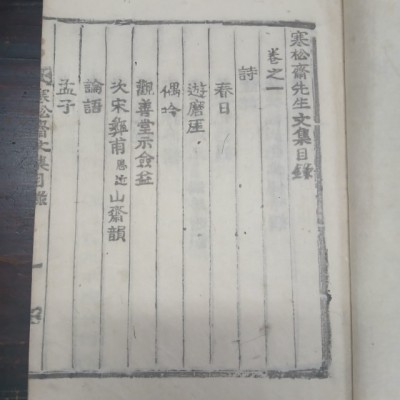 寒松齋先生文集目錄
卷之一
詩
春日
遊磨厓
偶吟
觀善堂示僉益
次宋彝甫恩近山齋韻
論語
孟子
寒松齋文集目錄
一